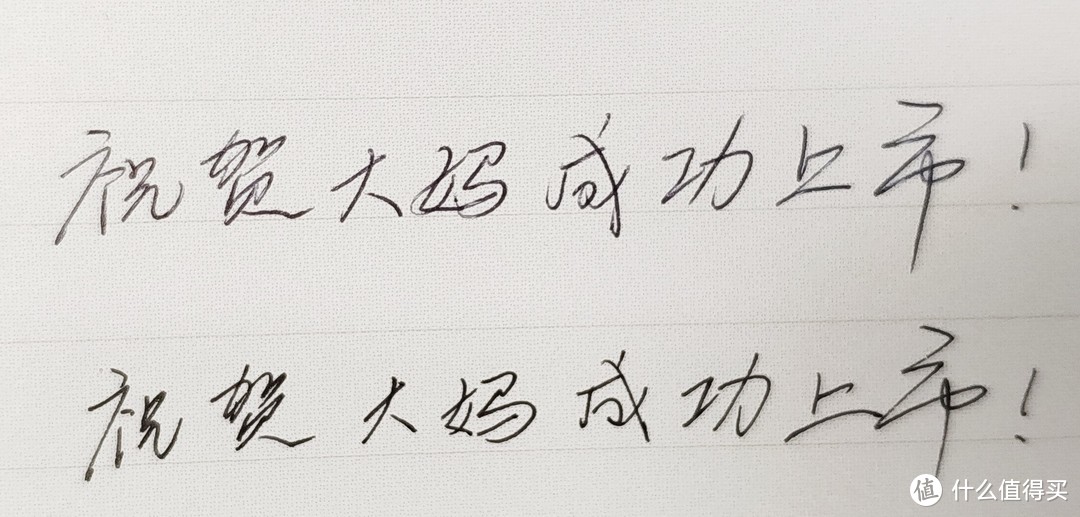 祝贺大妈成功上市!
祝贺大妈成功上市!
值 什么值得买